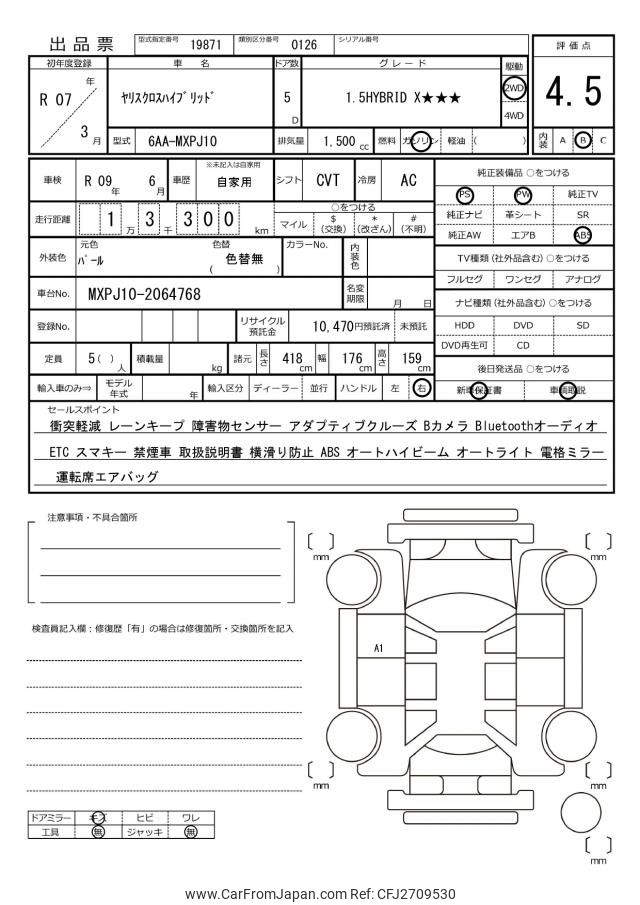 出品票
型式指定番号 19871 類別区分番号 0126 シリアル番号
初年度登録 車 名 ドア数 グレード 駆動 評価点
R 07 年 3 月 ヤリスクロスハイブリッド 5 D 1.5HYBRID X★★★ 2WD 4WD 4.5
型式 6AA-MXPJ10 排気量 1,500 cc 燃料 ガソリン 軽油 ( ) 内装 A B C
車検 R 09 年 6 月 車歴 ※未記入は自家用 自家用 シフト CVT 冷房 AC
走行距離 1 3 万 3 0 0 千 km
○をつける
マイル $ (交換) * (改ざん) # (不明)
外装色 元色 パール 色替 ( 色替無 ) カラーNo. 内装色
車台No. MXPJ10-2064768 名変期限 月 日
登録No. リサイクル預託金 10,470円預託済 未預託
定員 5 ( ) 人 積載量 kg 諸元 長さ 418 cm 幅 176 cm 高さ 159 cm
輸入車のみ⇒ モデル年式 年 輸入区分 ディーラー 並行 ハンドル 左 右
純正装備品 ○をつける
PS PW 純正TV
純正ナビ 革シート SR
純正AW エアB ABS
TV種類 (社外品含む) ○をつける
フルセグ ワンセグ アナログ
ナビ種類 (社外品含む) ○をつける
HDD DVD SD
DVD再生可 CD
後日発送品 ○をつける
新車保証書 車輌取説
セールスポイント
衝突軽減 レーンキープ 障害物センサー アダプティブクルーズ Bカメラ Bluetoothオーディオ
ETC スマキー 禁煙車 取扱説明書 横滑り防止 ABS オートハイビーム オートライト 電格ミラー
運転席エアバッグ
注意事項・不具合箇所
検査員記入欄:修復歴「有」の場合は修復箇所・交換箇所を記入
mm
mm
A1
mm
mm
mm
ドアミラー キズ ヒビ ワレ
工具 無 ジャッキ 無
www.CarFromJapan.com Ref: CFJ2709530